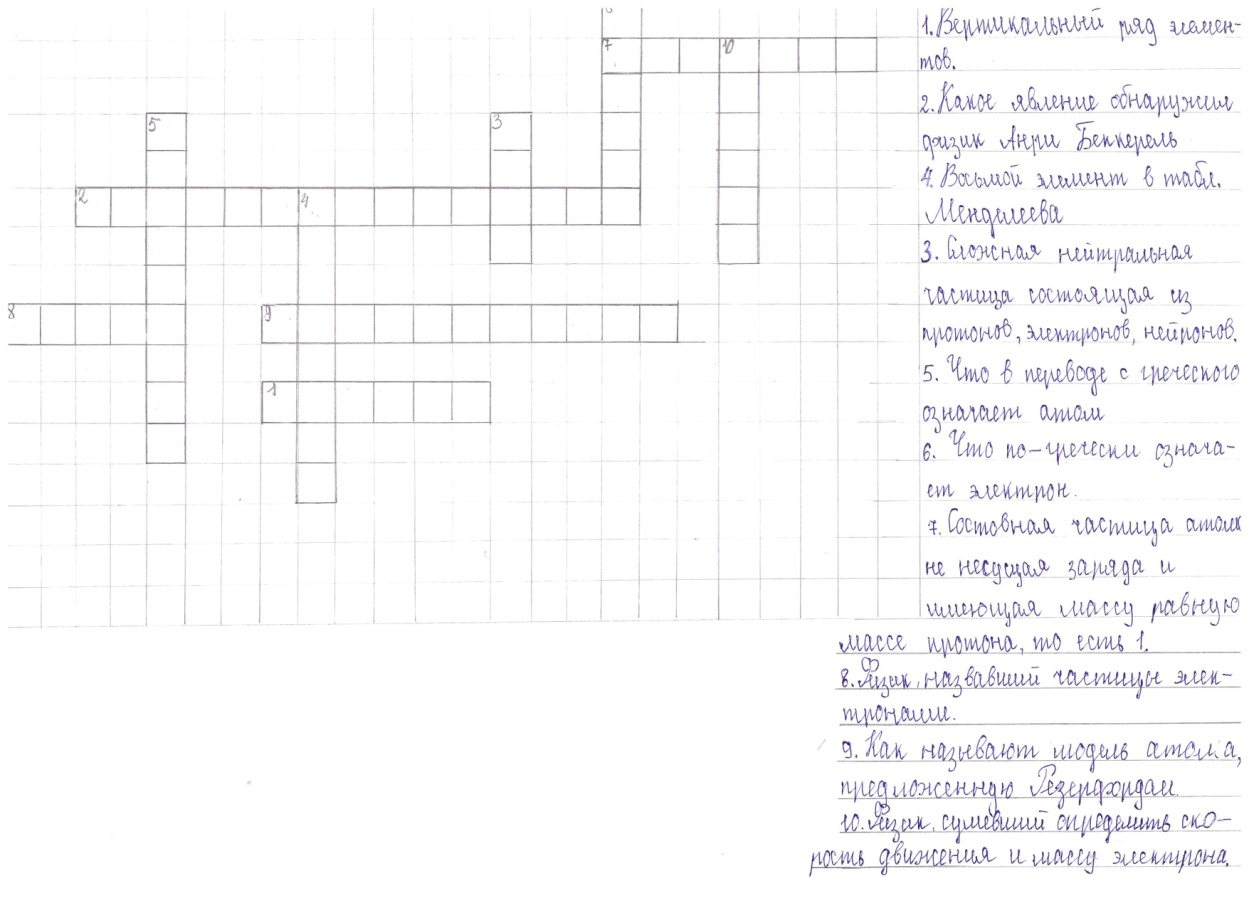 6
7
10
5
3
2
4
8
9
1
1. Вертикальный ряд элемен-
тов.
2. Какое явление обнаружил
физик Анри Беккерель
4. Восьмой элемент в табл.
Менделеева
3. Сложная нейтральная
частица состоящая из
протонов, электронов, нейтронов.
5. Что в переводе с греческого
означает атом
6. Что по-гречески означа-
ет электрон.
7. Состовная частица атома
не несущая заряда и
имеющая массу равную
массе протона, то есть 1.
8. Физик, назвавший частицы элек-
тронами.
9. Как называют модель атома,
предложенную Резерфордам.
10. Физик, сумевший определить ско-
рость движения и массу электрона.